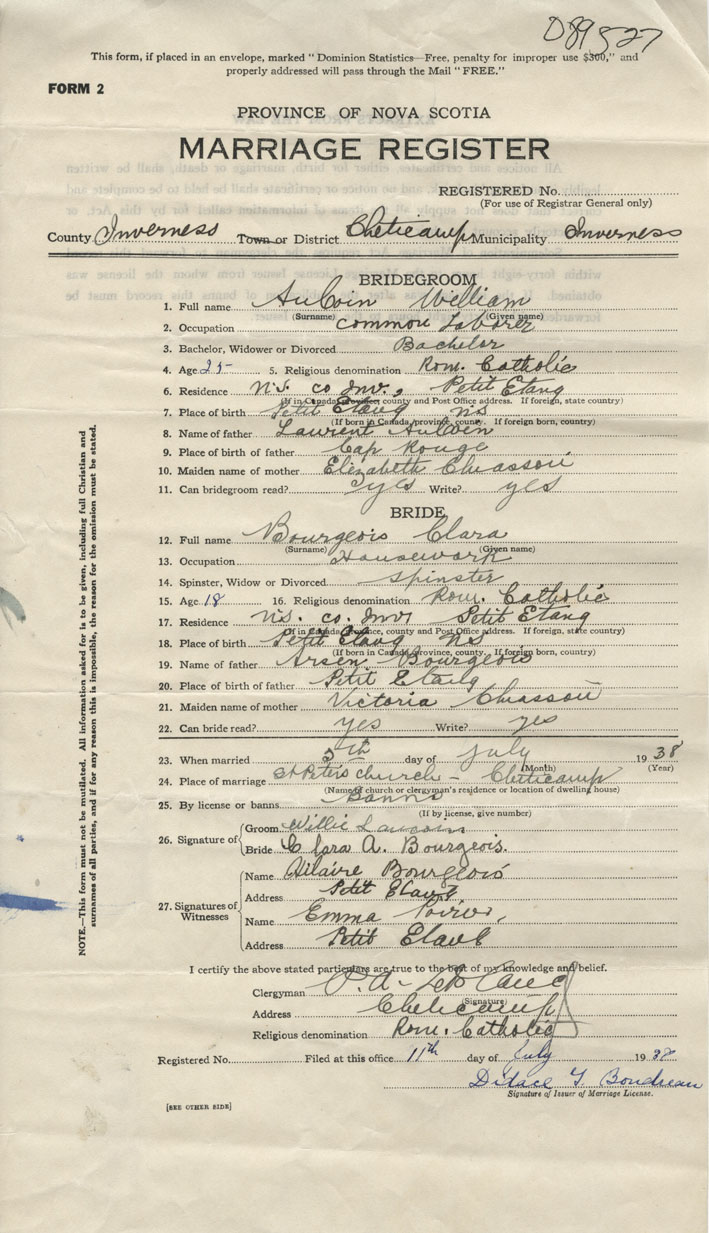 This form, if placed in an envelope, marked "Dominion Statistics—Free, penalty for improper use $300," and
properly addressed will pass through the Mail "FREE."
FORM 2
PROVINCE OF NOVA SCOTIA
MARRIAGE REGISTER
REGISTERED No.
(For use of Registrar General only)
County Inverness Town or District Cheticamp Municipality Inverness
BRIDEGROOM
1. Full name AuCoin William
(Surname) (Given name)
2. Occupation common Laborer
3. Bachelor, Widower or Divorced Bachelor
4. Age 25 5. Religious denomination Rom. Catholic
6. Residence N.S. co Inv., Petit Etang
(If in Canada, province, county and Post Office address. If foreign, state country)
7. Place of birth Petit Etang ns
(If born in Canada, province, county. If foreign born, country)
8. Name of father Laurent AuCoin
9. Place of birth of father Cap Rouge
10. Maiden name of mother Elizabeth Chiasson
11. Can bridegroom read? yes Write? yes
BRIDE
12. Full name Bourgeois Clara
(Surname) (Given name)
13. Occupation Housework
14. Spinster, Widow or Divorced spinster
15. Age 18 16. Religious denomination Rom. Catholic
17. Residence N.S. co. Inv Petit Etang
(If in Canada, province, county and Post Office address. If foreign, state country)
18. Place of birth Petit Etang NS
(If born in Canada, province, county. If foreign born, country)
19. Name of father Arsen Bourgeois
20. Place of birth of father Petit Etang
21. Maiden name of mother Victoria Chiasson
22. Can bride read? yes Write? yes
23. When married 5th day of July 1938
(Month) (Year)
24. Place of marriage St Peter's church - Cheticamp
(Name of church or clergyman's residence or location of dwelling house)
25. By license or banns Banns
(If by license, give number)
26. Signature of Groom Willie
Bride Clara A. Bourgeois.
27. Signatures of Witnesses
Name Hilaire Bourgeois
Address Petit Etang
Name Emma Poirier,
Address Petit Etang
I certify the above stated particulars are true to the best of my knowledge and belief.
Clergyman P.A. LeBlanc
(Signature)
Address Cheticamp
Religious denomination Rom. Catholic
Registered No. Filed at this office 11th day of July 1938
Boudreau
Signature of Issuer of Marriage License.
[SEE OTHER SIDE]
NOTE.—This form must not be mutilated. All information asked for is to be given, including full Christian and
surnames of all parties, and if for any reason this is impossible, the reason for the omission must be stated.